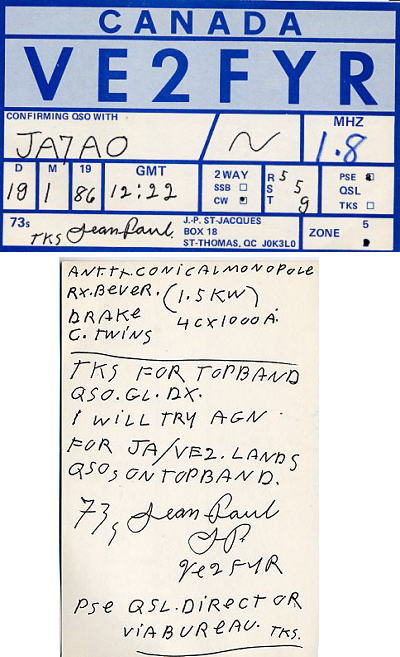 CANADA
VE2FYR
CONFIRMING QSO WITH
JA7AO / ~
MHZ
1.8
D M 19 GMT 2 WAY R S T PSE
SSB QSL
CW TKS
19 1 86 12:22 5 5 9
73s
TKS Jean Paul.
J.-P. ST-JACQUES
BOX 18
ST-THOMAS, QC J0K3L0
ZONE 5
ANT.TX.CONICALMONOPOLE
RX.BEVER. (1.5KW)
DRAKE 4CX1000A.
C. TWINS
TKS FOR TOPBAND
QSO.GL.DX.
I WILL TRY AGN.
FOR JA/VE2.LANDS
QSOs ON TOPBAND.
73, Jean Paul
J.P.
Ve2FYR
PSE QSL.DIRECT OR
VIA BUREAU. TKS.